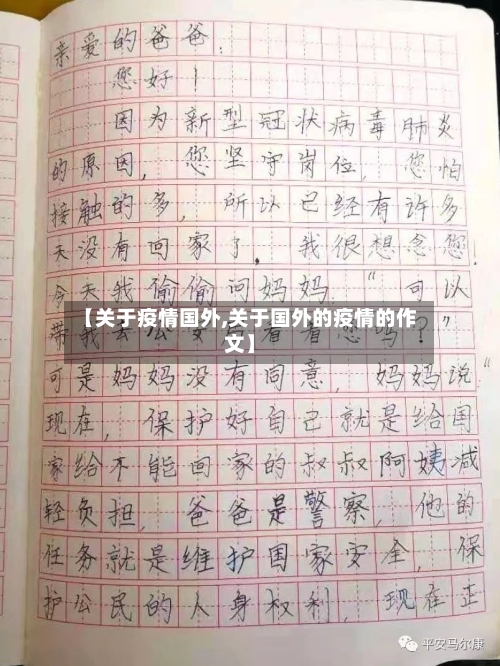 亲爱的爸爸：
您好！
因为新型冠状病毒肺炎
的原因，您坚守岗位，您怕
接触的多，所以已经有许多
天没有回家了，我很想念您！
今天我偷偷问妈妈“可以
带我去公安看看您吗？”
【关于疫情国外,关于国外的疫情的作
文】
可是妈妈没有同意，妈妈说：
现在，保护好自己就是给国
家给不能回家的叔叔阿姨减
轻负担，爸爸是警察，他的
任务就是维护国家安全，保
护公民的人身权利，现在正
平安马尔康